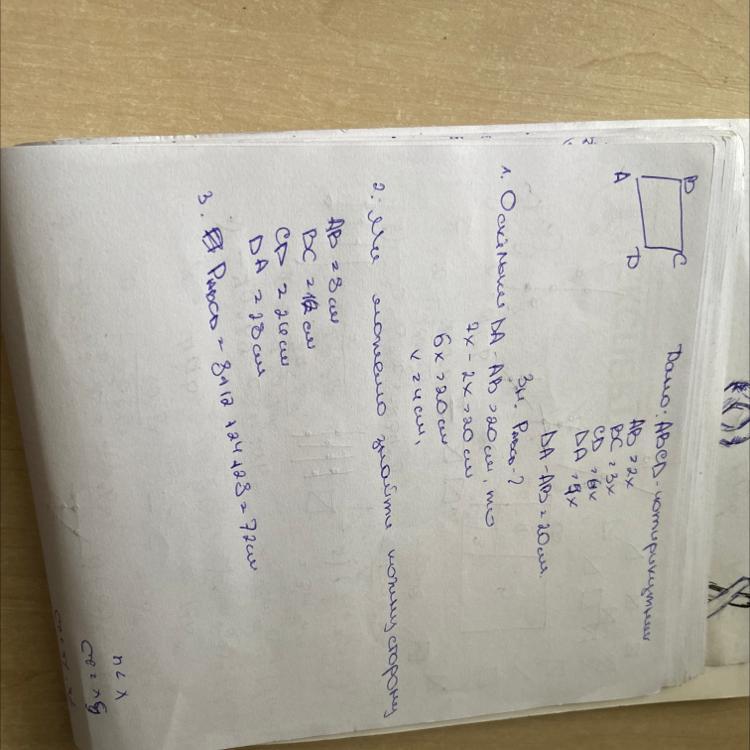 B C
A D
Дано: ABCD - чотирикутник
AB = 2x
BC = 3x
CD = 6x
DA = 7x
DA - AB = 20 см.
Зн. PABCD - ?
1. Оскільки DA - AB = 20 см, то
7x - 2x = 20 см
6x = 20 см
x = 4 см,
2. Ми можемо знайти кожну сторону
AB = 8 см
BC = 12 см
CD = 24 см
DA = 28 см
3. PABCD = 8+12+24+28 = 72 см